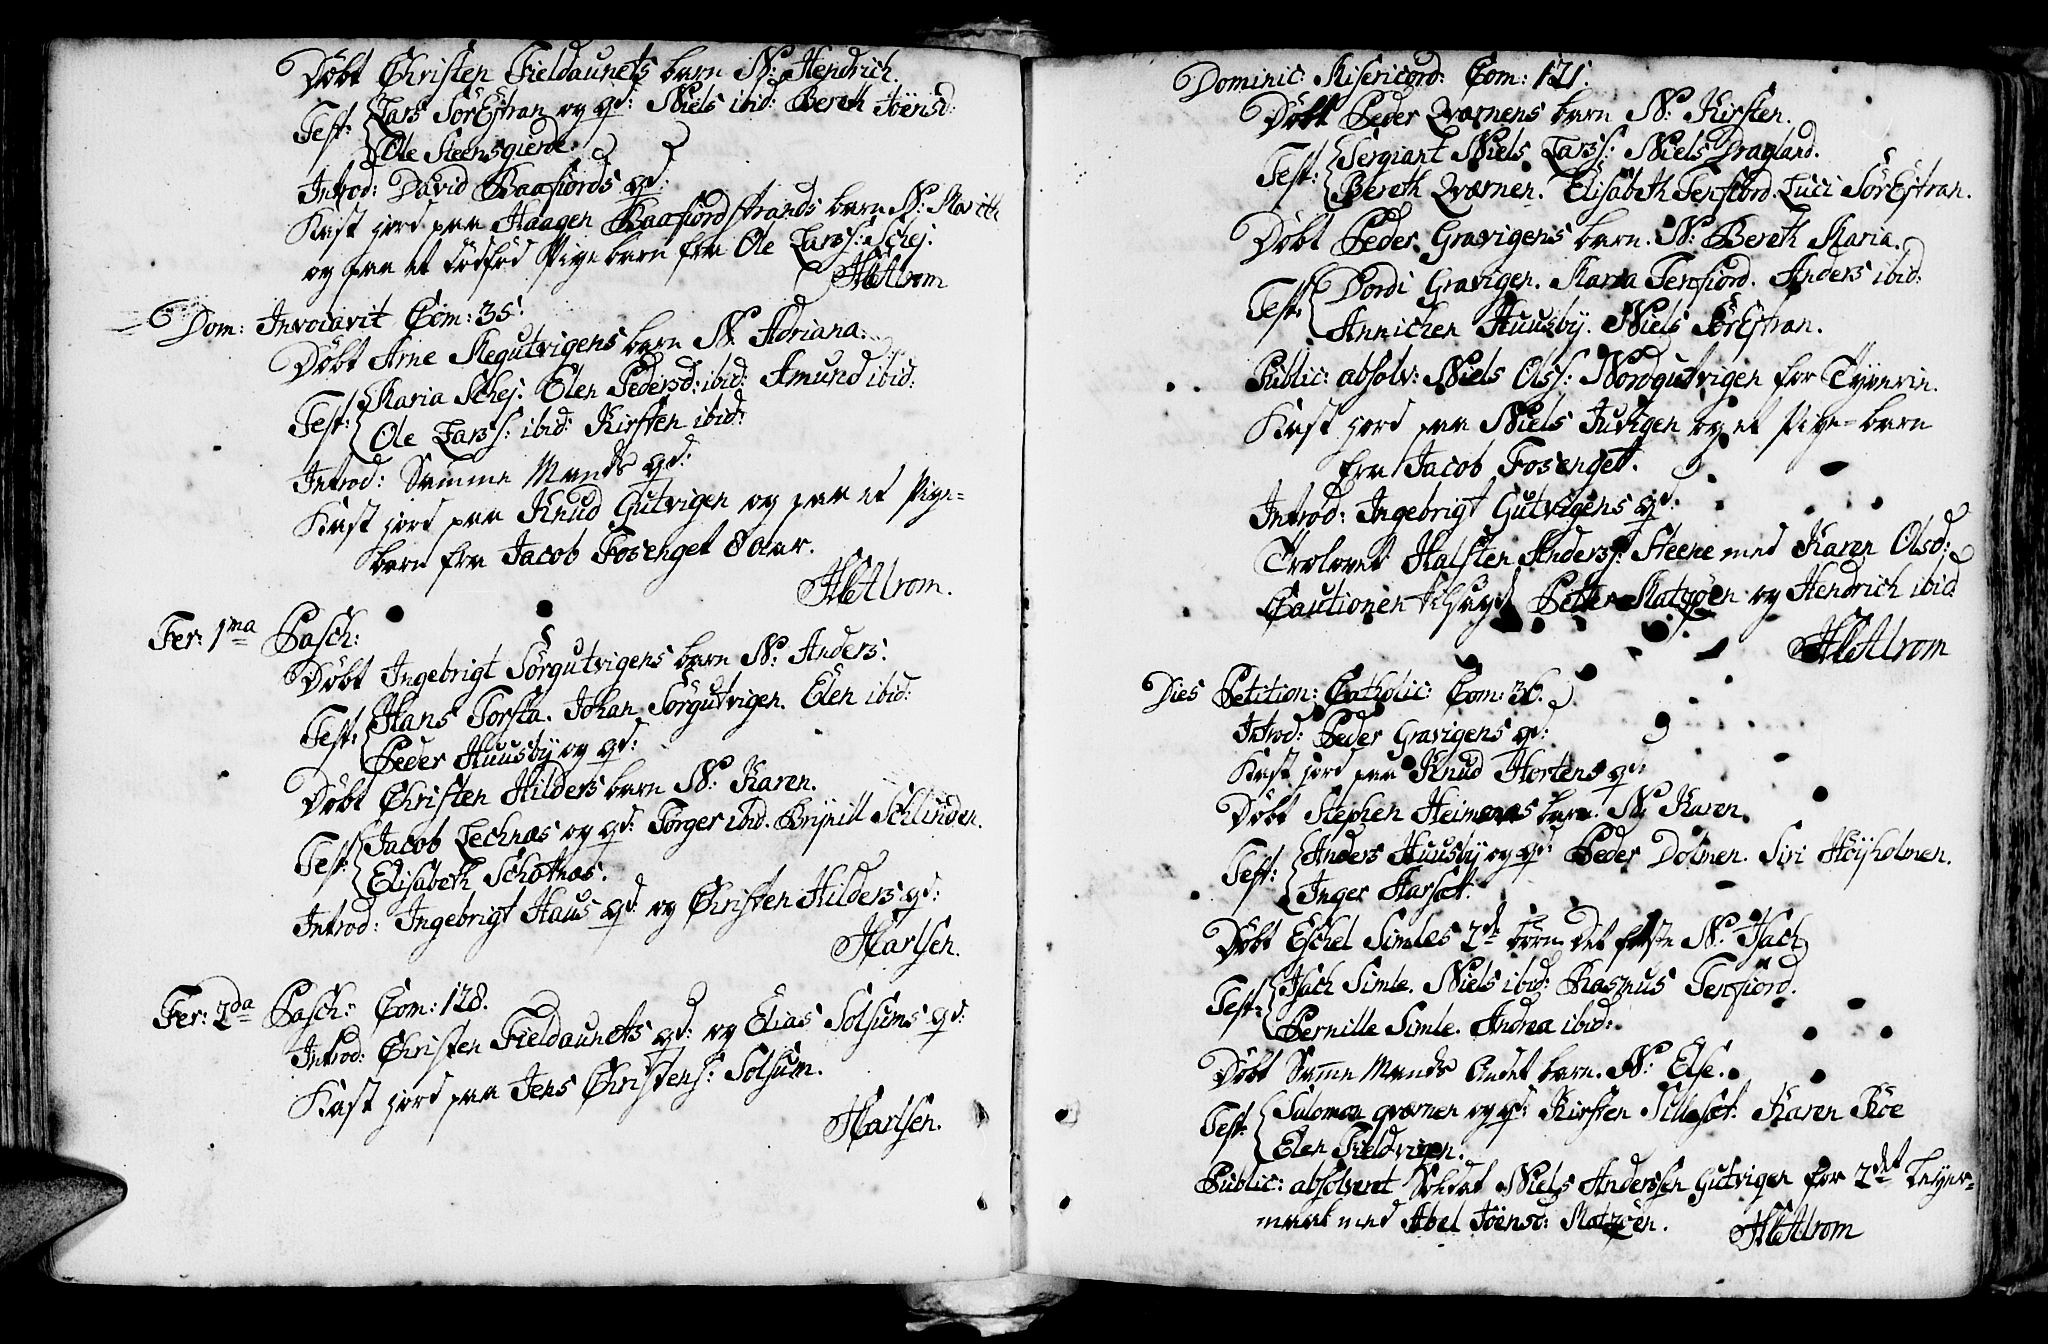 Døbt Christen Fieldaunets barn N: Hendrich.
Test: Lars SörEstran og qd: Niels ibid: Bereth Joensd:
Ole Steensgierde.
Introd: David Baafiords qd:
Kast jord paa Haagen Baafiordstrands barn N: Marith
og paa et dödföd Pige barn fra Ole Larss: Schej.
Dom: Invocavit Com: 35.
Døbt Arne Megutvigens barn N: Adriana.
Test: Maria Schej. Elen Pedersd: ibid: Amund ibid:
Ole Larss: ibid: Kirsten ibid:
Introd: Samme Mands qd:
Kast jord paa Knud Gutvigen og paa et Pige-
barn fra Jacob Fosenget 8 aar.
Fer: 1ma Pasch:
Døbt Ingebrigt Sörgutvigens barn N: Anders.
Test: Hans Torsta. Johan Sörgutvigen. Elen ibid:
Peder Huusbÿ og qd:
Døbt Christen Hilders barn N: Karen.
Test: Jacob Lechnæs og qd: Torger ibid. Brynill Schlinden.
Elisabeth Schotnæs.
Introd: Ingebrigt Haus qd: og Christen Hilders qd:
HCarlsen.
Fer: 2da Pasch: Com: 128.
Introd: Christen Fieldaunets qd: og Elias Solsums qd:
Kast jord paa Jens Christens: Solsum.
HCarlsen.
Dominic: Misericord: Com: 121.
Døbt Peder Qværnens barn N: Kirsten.
Test: Sergiant Niels Larss: Niels Dragland.
Bereth Qværnen. Elisabeth Terfiord. Luci SörEstran.
Døbt Peder Gravigens barn. N: Bereth Maria.
Test: Dordi Gravigen. Maria Terfiord. Anders ibid:
Annichen Huusbÿ. Niels SörEstran.
Public: absolv: Niels Olss: Nordgutvigen for Tyverie.
Kast jord paa Niels Juvigen og et Pige-barn
fra Jacob Fosenget.
Introd: Ingebrigt Gutvigens qd:
Trolovet Halsten Anderss: Steene med Karen Olsd:
Cautionen tilsagt Petter Matzöen og Hendrich ibid
Dies Petition: Catholic: Com: 36.
Introd: Peder Gravigens qd:
Kast jord paa Knud Hortens qd:
Døbt Stephen Heimnæs barn. N: Karen.
Test: Anders Huusbÿ og qd: Peder Dolmen. Siri Höÿholmen.
Inger Harsæt.
Døbt Eschel Simles 2de börn det förste N: Isach
Test: Isach Simle. Niels ibid: Rasmus Terfiord.
Pernille Simle. Andrea ibid:
Døbt Samme Mands Andet barn. N: Else.
Test: Salomon qværnen og qd: Kirsten Tillesæt. Karen Röe
Elen Fieldvigen.
Public: absolveret Soldat Niels Anderssen Gutvigen for 2det Leyer-
maal med Abel Joensd: Matzöen.